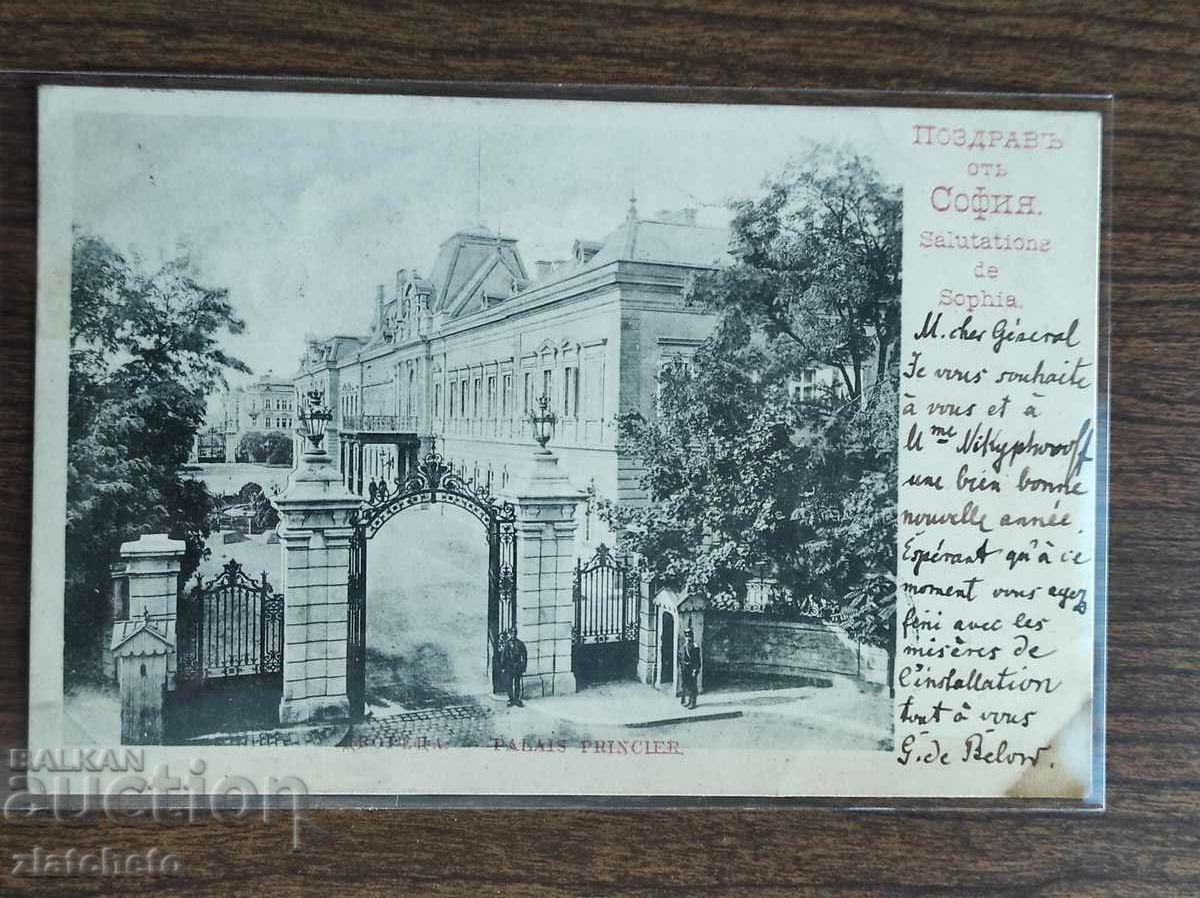 Поздравъ
отъ
София.
Salutations
de
Sophia.
M. cher Général
Je vous souhaite
à vous et à
Mme Nikyphoroff
une bien bonne
nouvelle année.
Espérant qu'à ce
moment vous ayez
fini avec les
misères de
l'installation
tout à vous
G. de Below.
PALAIS PRINCIER.
BALKAN
auction
zlatcheto